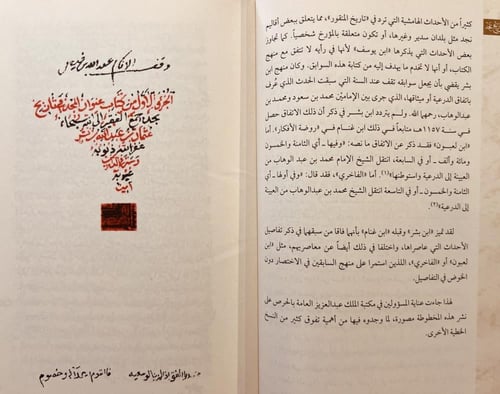 كثيراً من الأحداث الهامشية التي ترد في «تاريخ المنقور»، مما يتعلق ببعض أقاليم
نجد مثل بلدان سدير وغيرها، أو تكون متعلقة بالمؤرخ شخصياً. كما تجاوز
بعض الأحداث التي يذكرها «ابن يوسف» لأنه في رأيه لا تتفق مع منهج
الكتاب، أو أنها لا تخدم ما يهدف إليه من كتابة هذه السوابق. وكان منهج ابن
بشر يقضي بأن يجعل سوابقه تقف عند السنة التي سبقت الحدث الذي عُرف
باتفاق الدرعية أو ميثاقها، الذي جرى بين الإمامين محمد بن سعود ومحمد بن
عبد الوهاب، رحمهما الله. ولم يتردد ابن بشر في ذكر أن ذلك الاتفاق حصل
في سنة ١١٥٧هـ متابعاً في ذلك ابن غنام في «روضة الأفكار». أما
«ابن لعبون» فقد ذكر عن الاتفاق ما نصه: «وفيها ـ أي الثامنة والخمسون
ومائة وألف ـ أو في السابعة، انتقل الشيخ الإمام محمد بن عبد الوهاب من
العيينة إلى الدرعية واستوطنها»(١). أما «الفاخري»، فقد قال: «وفي أولها ـ أي
الثامنة والخمسون ـ أو في التاسعة انتقل الشيخ محمد بن عبدالوهاب من العيينة
إلى الدرعية»(٢).
لقد تميز «ابن بشر» وقبله «ابن غنام» بأنهما فاقا من سبقهما في ذكر تفاصيل
الأحداث التي عاصراها، واختلفا في ذلك أيضاً عن معاصريهم، مثل «ابن
لعبون» أو «الفاخري»، اللذين استمرا على منهج السابقين في الاختصار دون
الخوض في التفاصيل.
لهذا جاءت عناية المسؤولين في مكتبة الملك عبدالعزيز العامة بالحرص على
نشر هذه المخطوطة مصورة، لما وجدوه فيها من أهمية تفوق كثير من النسخ
الخطية الأخرى.
وقف الإمام عبد الله بن فيصل
الجزء الأول من كتاب عنوان المجد في تاريخ
نجد
عثمان بن عبد الله بن بشر
غفر الله ذنوبه
وستر
عيوبه
آمين